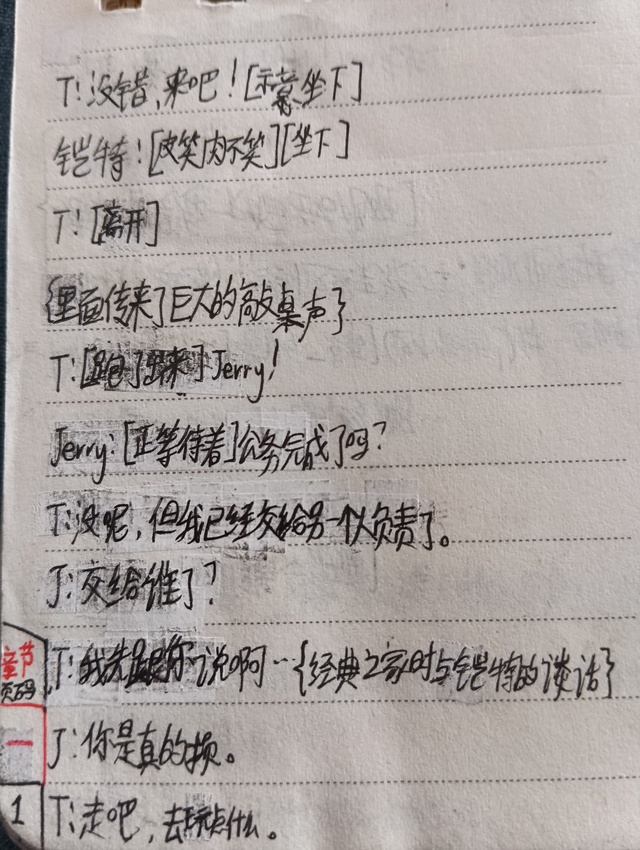 T:没错,来吧![示意坐下]
铠特:[皮笑肉不笑][坐下]
T:[离开]
{里面传来了巨大的敲桌声}
T:[跑了出来]Jerry!
Jerry:[正等待着]公务完成了吗?
T:没呢,但我已经交给另一个人负责了。
J:交给谁了?
T:我先跟你说啊…{经典之家时与铠特的谈话}
J:你是真的损。
T:走吧,去玩点什么。
章节
页码
一
1